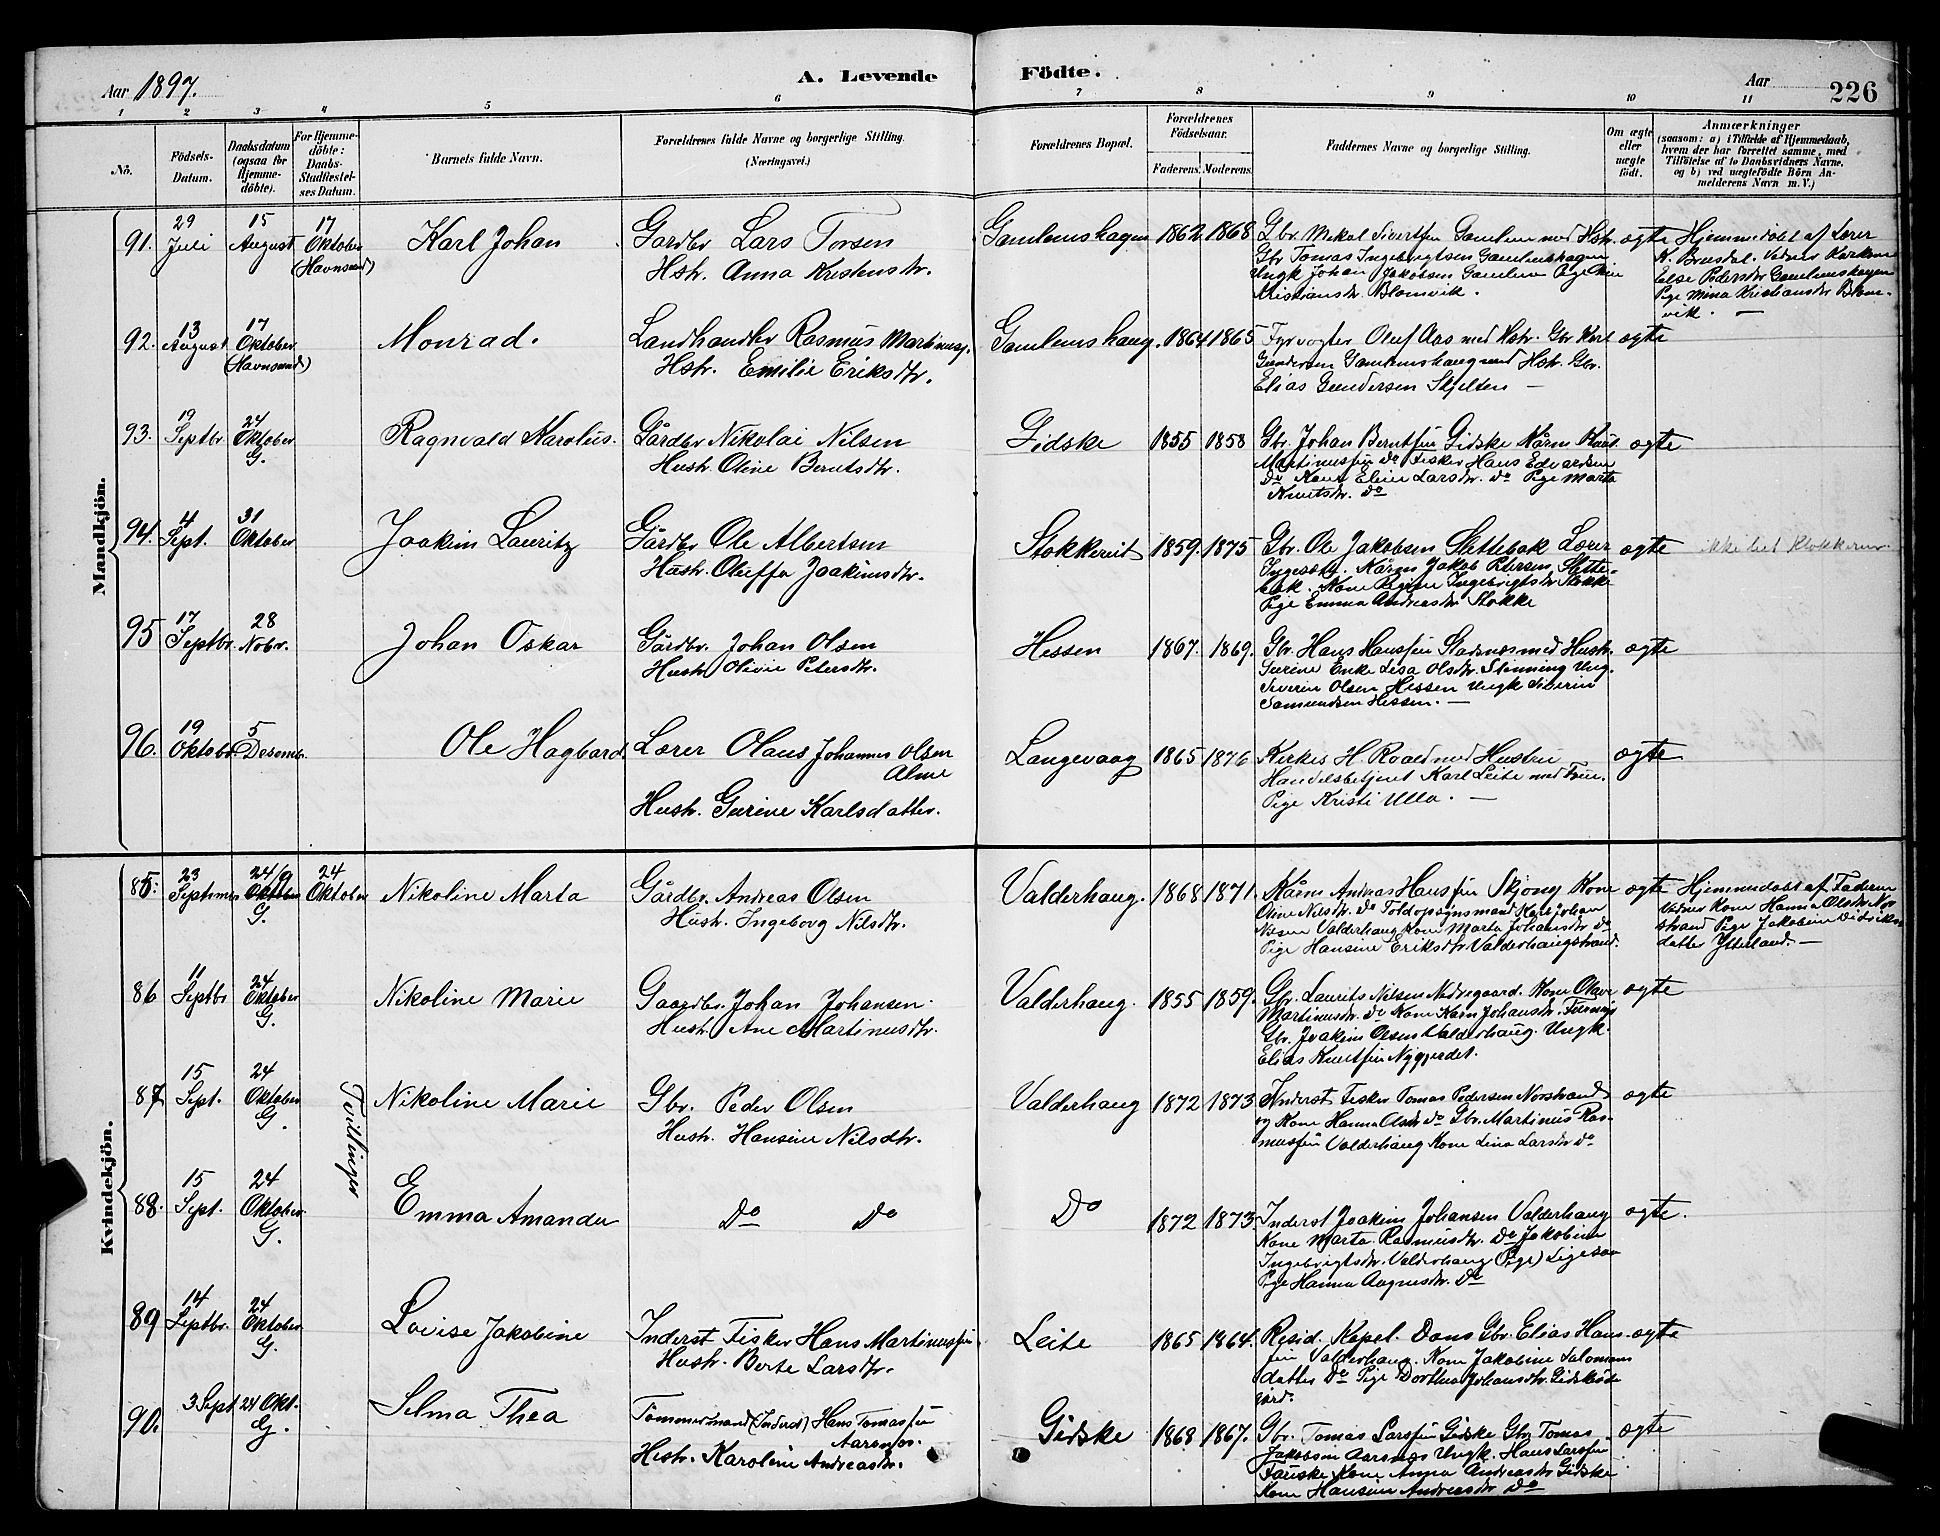 Aar 1897.
A. Levende Födte.
Aar
226
1 2 3 4 5 6 7 8 9 10 11
No.
Födsels-
Datum.
Daabsdatum
(ogsaa for
Hjemme-
döbte).
For Hjemme-
döbte:
Daabs-
Stadfæstel-
ses Datum.
Barnets fulde Navn.
Forældrenes fulde Navne og borgerlige Stilling.
(Næringsvei.)
Forældrenes Bopæl.
Forældrenes
Födselsaar.
Faderens. Moderens.
Faddernes Navne og borgerlige Stilling.
Om ægte
eller
uægte
födt.
Anmærkninger
(saasom: a) i Tilfælde af Hjemmedaab,
hvem der har forrettet samme, med
Tilföielse af to Daabsvidners Navne,
og b) ved uægtefödte Börn An-
melderens Navn m. V.)
Mandkjön.
91. 29 Juli 15 August 17 Oktober (Havnsund) Karl Johan
Gardbr Lars Torsen
Hstr. Anna Kristensdtr.
Gamlemshagen 1862 1868
Gbr. Mikal Sivertsen Gamlem med Hstr.
Gbr Tomas Ingebrigtsen Gamlemshagen
Ungk Johan Jakobsen Gamlem Pige
Kristiansdr. Blomvik.
ægte
Hjemmedøbt af Lærer
K. Brusdal. Vidner
Else Pedersdtr Gamlemshagen
Pige Mina Kristiansdtr Blom-
vik. —
92. 13 August 17 Oktober (Havnsund) Monrad.
Landhandler Rasmus Martinuss.
Hstr. Emilie Eriksdtr.
Gamlemshaug. 1864 1865
Fyrvogter Oluf Aas med Hstr. Gbr Karl
Gundersen Gamlemshaug med Hstr. Gbr.
Elias Gundersen Skjelten —
ægte
93. 19 Septbr 24 Oktober G. Ragnvald Karolus.
Gårdbr Nikolai Nilsen
Hustr. Oline Berntsdtr.
Gidske 1855 1858
Gbr. Johan Berntsen Gidske Kårm Knut
Martinussen Do Fisker Hans Edvardsen
Do Kone Eline Larsdtr. do Pige Marta
Knutsdtr. Do
ægte
94. 4 Sept. 31 Oktober Joakim Lauritz
Gårdbr Ole Albertsen
Hustr. Oluffa Joakimsdtr.
Stokkereit 1859. 1875
Gbr. Ole Jakobsen Slettebak Lærer
Kårm Jakob Petersen Slette-
bak. Kone Regine Ingebrigtsdtr Stokke
Pige Emma Andreasdtr Stokke
ægte
ikke
95 17 Septbr. 28 Nobr. Johan Oskar
Gårdbr. Johan Olsen
Hustr Olivie Petersdtr.
Hessen 1867. 1869.
Gbr. Hans Hanssen Gladnæs med Hustr.
Gurine Enke Lisa Olsdtr. Slinning Ung.
Severin Olsen Hessen Ungk Siverin
Samundsen Hessen. —
ægte
96. 19 Oktobr. 5 Desembr. Ole Hagbard.
Lærer Olaus Johannes Olsen
Alme
Hustr. Gurine Karlsdatter.
Langevaag 1865 1876
Kirkes. H. Roald med Hustru
Handelsbetjent Karl Leite med Frue.
Pige Kristi Ulla. —
ægte
Kvindekjön.
85: 23 Septemb 24/9 Oktober G. 24 Oktober Nikoline Marta
Gårdbr. Andreas Olsen
Hustr. Ingeborg Nilsdtr.
Valderhaug. 1868 1871.
Kårm Andreas Hanssen Skjong Kone
Oline Nilsdtr. Do Toldopsynsmand Karl Johan
Nissen Valderhaug Kone Marta Johansdtr Do
Pige Hansine Eriksdtr Valderhaugstrand.
ægte
Hjemmedøbt af Faderen
Vidner Kone Hanna Olsdtr Nor-
strand Pige Jakobine Didriks
datter Ytterland. —
86 11 Septbr 24 Oktober G. Nikoline Marie
Gaardbr. Johan Johansen.
Hustr. Ane Martinusdtr.
Valderhaug. 1855 1859.
Gbr. Laurits Nilsen Nedregaard. Kone Olave
Martinusdtr. Do Kone Karn Johansdtr.
Gbr. Joakim Olsen Valderhaug. Ungk.
Elias Knutsen Nygjerdet.
ægte
87 15 Sept. 24 Oktober G. Nikoline Marie
Tvillinger
Gbr. Peder Olsen
Hustr. Hansine Nilsdtr.
Valderhaug 1872 1873
Inderst Fisker Tomas Pedersen Norstrand
og Kone Hanna Olsdtr Do Gbr. Martinus Ras-
mussen Valderhaug Kone Lina Larsdtr Do
ægte
88. 15 Sept. 24 Oktober G. Emma Amanda
Do Do
Do 1872 1873
Inderst Joakim Johansen Valderhaug
Kone Marta Rasmusdtr. Do Jakobine
Ingebrigtsdtr. Valderhaug (Pige) Ligesaa
Pige Hanna Aagnesdtr. Do
ægte.
89 14 Septbr. 24 Oktober G. Lovise Jakobine
Inderst Fisker Hans Martinussen
Hustr. Berte Larsdtr.
Leite 1865 1864.
Resid. Kapel. Dons Gbr. Elias Hans-
sen Valderhaug. Kone Jakobine Salomons
datter Do Pige Dorthea Johansdtr. Gidske
ægte
90. 3 Sept 24 Okt. G. Selma Thea
Tømmermand (Inderst) Hans Tomassen
Aarsnes.
Hustr. Karoline Andreasdtr.
Gidske 1868 1867.
Gbr. Tomas Larssen Gidske Gbr Tomas
Jakobsen Aarsnæs Ungk. Hans Larssen
Kone Anna Andreasdtr Gidske
Kone Hansine Andreasdtr Do
ægte